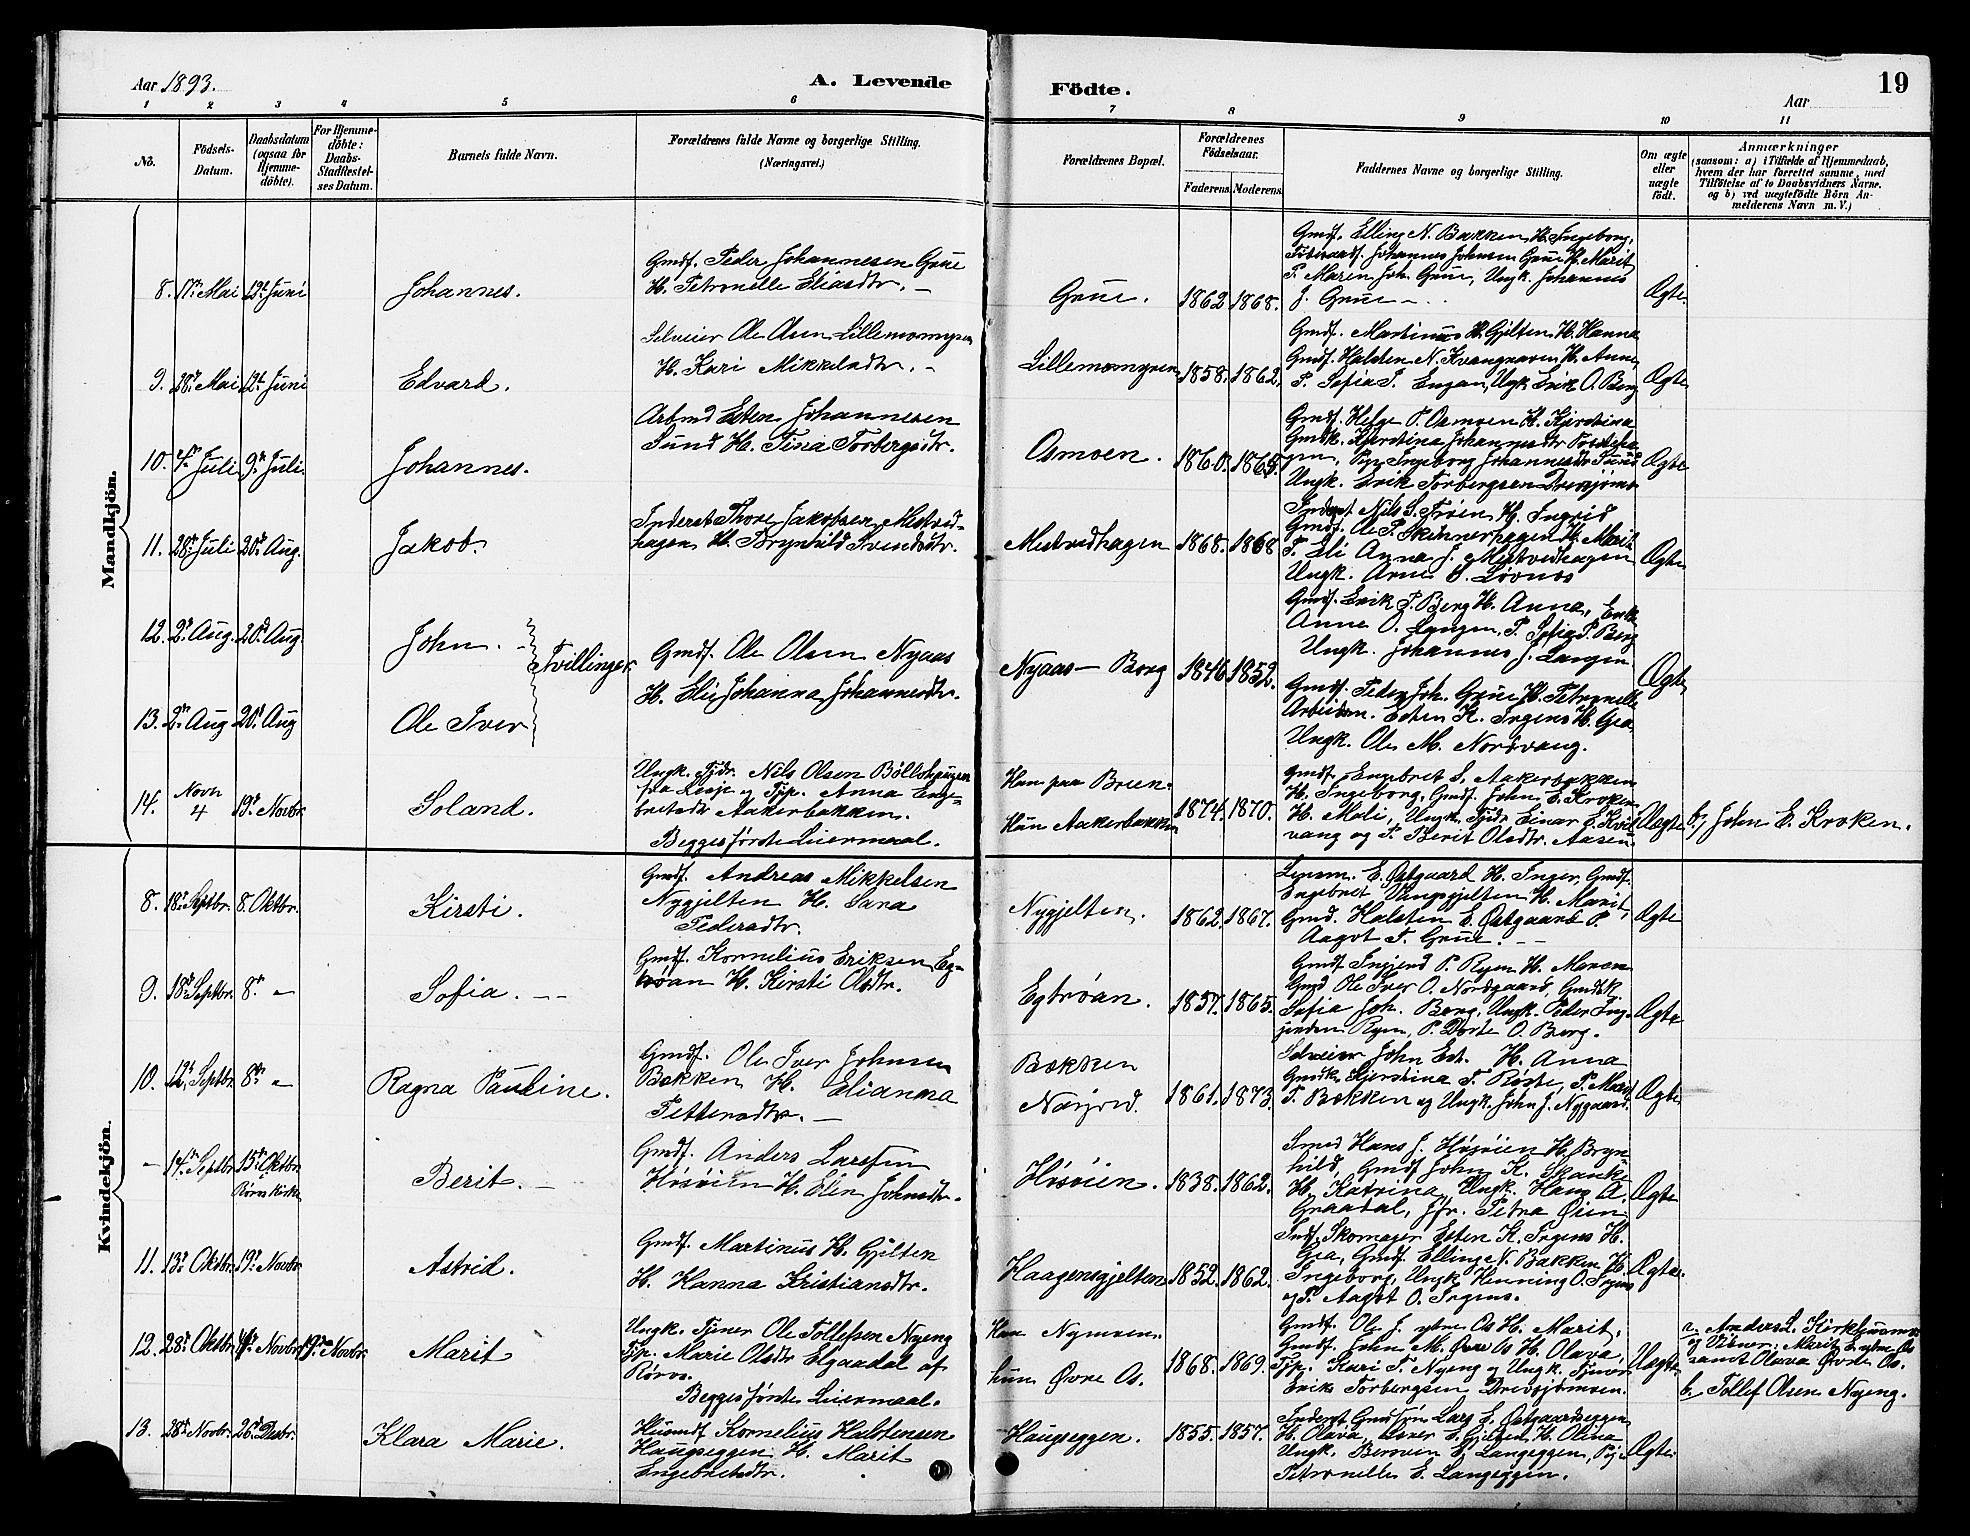 Aar 1893.
A. Levende
Födte.
Aar
19
1 2 3 4 5 6 7 8 9 10 11
No.
Födsels-
Datum.
Daabsdatum
(ogsaa for
Hjemme-
döbte).
For Hjemme-
döbte:
Daabs-
Stadfæstel-
ses Datum.
Barnets fulde Navn.
Forældrenes fulde Navne og borgerlige Stilling.
(Næringsvei.)
Forældrenes Bopæl.
Forældrenes
Födselsaar.
Faderens.
Moderens.
Faddernes Navne og borgerlige Stilling.
Om ægte
eller
uægte
födt.
Anmærkninger
(saasom: a) i Tilfælde af Hjemmedaab,
hvem der har forrettet samme, med
Tilföielse af to Daabsvidners Navne,
og b) ved uægtefödte Börn An-
melderens Navn m. V.)
Mandkjön.
8. 17de Mai 12te Juni
Johannes.
Gmdf. Peder Johannesen Grue
H. Petronelle Eliasdtr. –
Grue.
1862 1868.
Gmdf. Elling N. Bakken, H. Ingeborg,
Johannes Johnsen Grue H. Marit
P. Maren Joh. Grue, Ungk. Johannes
J. Grue –
Ægte
9. 28de Mai 12te Juni
Edvard.
Selveier Ole Olsen Lillemomyren
H. Kari Mikkelsdtr. –
Lillemomyren
1858. 1862.
Gmdf. Martinus H. Gjelten H. Hanna
Gmdf. Halsten N. Kvangraven H. Anne,
P. Sofia P. Engan, Ungk. Erik O. Berg
Ægte
10. 4de Juli 9de Juli
Johannes.
Arbmd Esten Johannesen
Sund H. Tina Torbergsdtr.
Osmoen.
1860. 1865.
Gmdf. Helge P. Osmoen H. Kjerstina
Gmdk. Kjerstina Johannesdtr
Pige Ingeborg Johannesdtr Sund
Ungk. Erik Torbergsen Drevsjømo
Ægte
11. 28de Juli 20de Aug.
Jakob.
Inderst Thore Jakobsen Mistvid-
hagen H. Brynhild Svendsdtr.
Mistvidhagen
1868. 1868
Inderst Nils S. Trøen H. Ingrid
Gmdf. Ole P. Skinnerhagen H. Marit
P. Eli Anna J. Mistvidhagen
Ungk. Arne S. Løvnes
Ægte
12. 2den Aug. 20de Aug.
John. –
Tvillinger.
Gmdf. Ole Olsen Nyaas
H. Eli Johanna Johannesdtr.
Nyaas – Borg
1846 1852.
Gmdf. Erik P. Berg H. Anna, Enk
Anne O. Langen, P. Sofie P. Berg
Ungk. Johannes J. Langen
Ægte
13. 2den Aug 20de Aug
Ole Iver
Gmdf. Peder Joh. Grue H. Petronelle
Arbeidm. Esten K. Irgens H. Gea
Ungk. Ole M. Nordvang.
14. Novbr 4 19de Novbr.
Soland.
Ungk. Tjdr. Nils Olsen Bøllshaugen
fra Lesje og Tjp. Anna Enge-
bretsdtr Aakerbakken.
Begges første Leiermaal.
Han paa Breen.
Hun Aakerbakken
1874. 1870.
Gmdf. Engebret S. Aakerbakken
H. Ingeborg, Gmdf. John E. Kroken
H. Mali, Ungk. Tjdr Einar E. Kvil-
vang og P. Berit Olsdtr. Aasen
Uægte
b) John E. Kroken.
Kvindekjön.
8. 18de Septbr. 8. Oktbr.
Kirsti.
Gmdf. Andreas Mikkelsen
Nygjelten H. Sara
Pedersdtr.
Nygjelten.
1862. 1867.
Lensm. E. Østgaard H. Inger, Gmdf.
Engebret Vangsgjelten H. Marit,
Gmd. Halsten E. Østgaard P.
Aagot P. Grue. – –
Ægte
9. 18de Septbr. 8de "
Sofia. – –
Gmdf. Kornelius Eriksen Eg-
trøan H. Kirsti Olsdtr.
Egtrøan.
1857. 1865.
Gmdf Ingjerd P. Ryen H. Maren
Gmd Ole Iver O. Nordgaard, Gmdsk
Sofia Joh. Borg, Ungk. Peder Ing-
jerdsen Ryen, P. Dorte O. Berg.
Ægte
10. 12te Septbr. 8de "
Ragna Pauline.
Gmdf. Ole Iver Johnsen
Bakken H. Elianna
Pettersdtr. –
Bakken
Narjord.
1861. 1873.
Selveier John Est. H. Anna
Gmdk. Kjerstina T. Røste, P. Marit
T. Bakken og Ungk. John J. Nygaard.
Ægte
– 14de Septbr. 15de Oktbr.
Røros Kirke
Berit. –
Gmdf. Anders Larssen
Høsøien H. Elen Johnsdtr.
Høsøien.
1838. 1862.
Smed Hans J. Høsøien H. Bryn-
hild, Gmdf John K. Skanke
H. Katrina, Ungk. Hans A.
Graadal, Jfr. Petra Øien
Ægte
11. 13de Oktbr. 19de Novbr.
Astrid.
Gmdf. Martinus H. Gjelten
H. Hanna Kristiansdtr.
Haagensgjelten
1852. 1862.
Ind. Skomager Esten K. Irgens H.
Gea, Gmdf. Elling N. Bakken H.
Ingeborg, Ungk Henning O. Irgens
og P. Aagot O. Irgens.
Ægte.
12. 28de Oktbr. Novbr 19de Novbr.
Marit
Ungk. Tjener Ole Tollefsen Nyeng
Tjp. Marie Olsdtr Elgaadal af
Røros.
Begges første Leiermaal.
Han Nymoen.
hun Øvre Os.
1868. 1869.
Gmdf. Ole J. ytre Os H. Marit,
Gmdf. John M. Øvre Os H. Olava,
Tjp. Kari T. Nyeng og Ungk. Tjener
Erik Torbergsen Drevsjømoen.
Uægte
a. Anders L. Kirkhusmo
og Vidner: Marit E. ytre Os
samt Olava Øvre Os.
b. Tollef Olsen Nyeng.
13. 28de Novbr. 26de Desbr.
Klara Marie.
Husmdf Kornelius Halstensen
Haugseggen H. Marit
Engebretsdtr.
Haugseggen.
1855. 1857.
Inderst Gmdsøn Lars E. Østgaardseggen
H. Olava, E. Gjelten H. Olina
Ungk. Bersven E. Langeggen, Pige
Petronelle E. Langeggen.
Ægte.